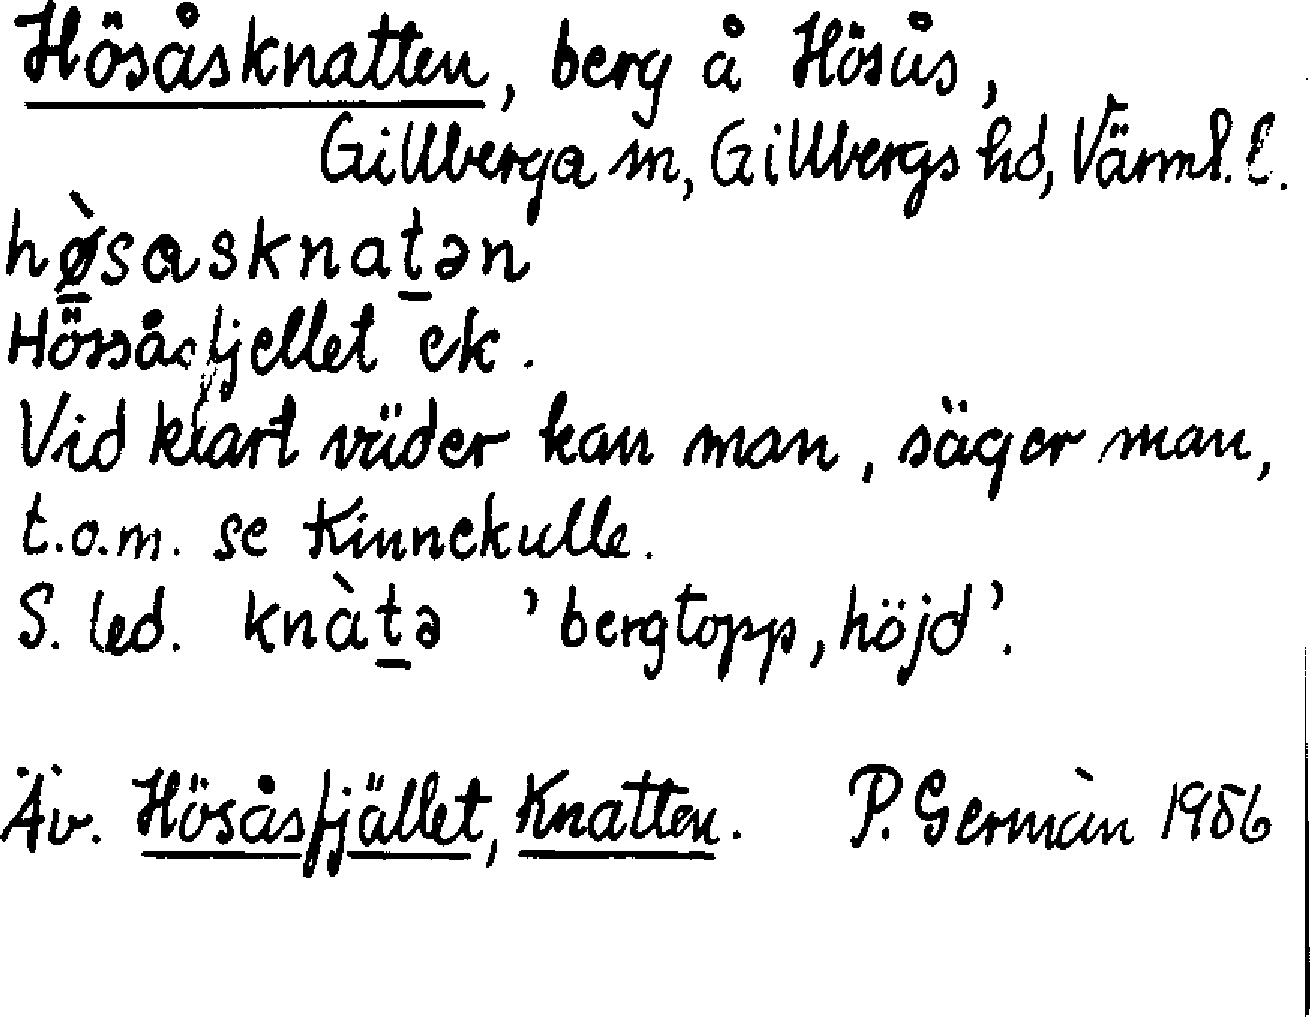 Hösåsknatten, berg å Hösås,
Gillberga sn, Gillbergs hd, Värml. l.
hø̠̀sasknat̠ən
Hössåsfjellet ek.
Vid klart väder kan man, säger man,
t.o.m. se Kinnekulle.
S. led. knàt̠ə 'bergtopp, höjd'.
Äv. Hösåsfjället, Knatten. P. Germàn 1956